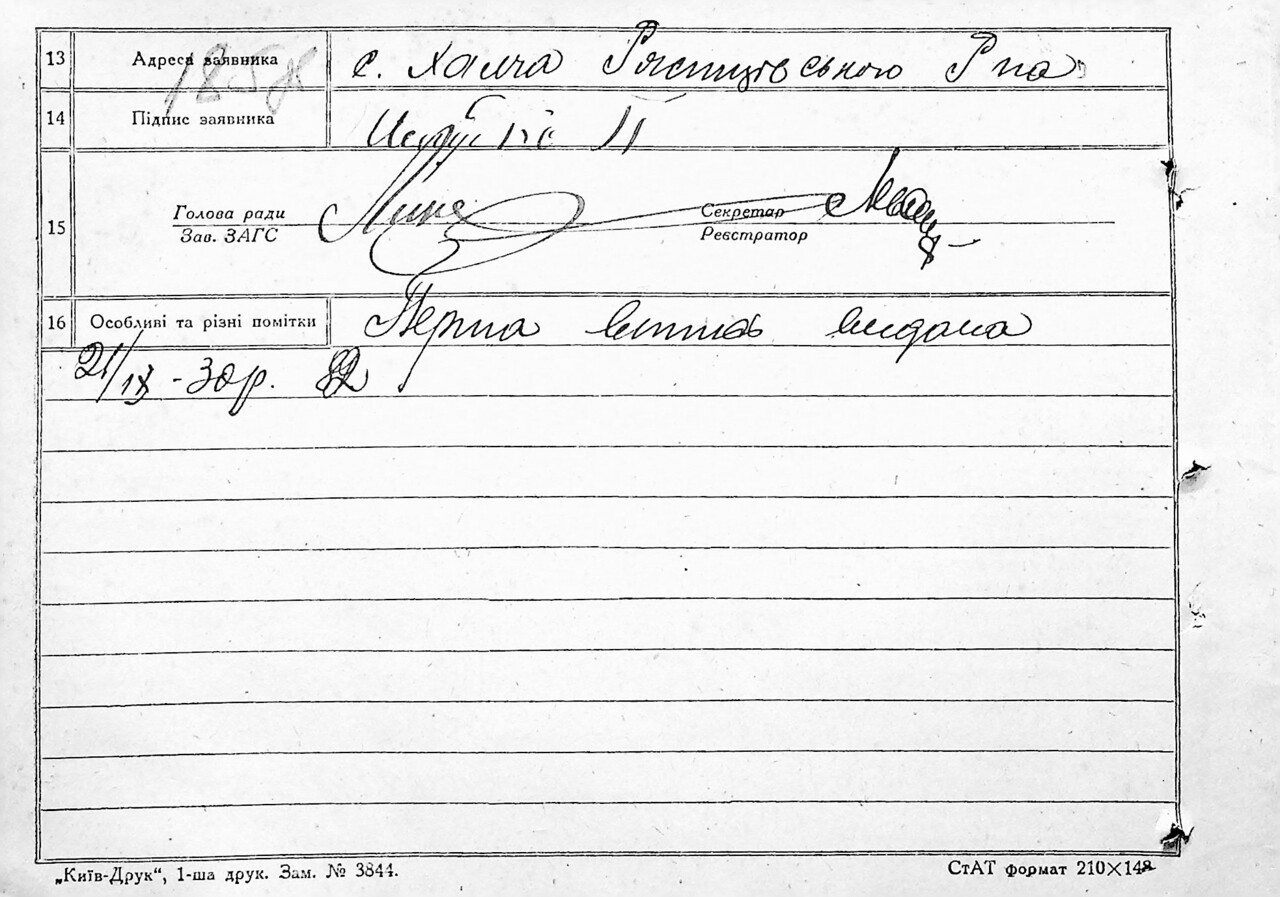 13 Адреса заявника с. Халча Ржищівського Р-на
14 Підпис заявника
15 Голова ради Секретар
Зав. ЗАГС Реєстратор
16 Особливі та різні помітки Перша випись видана
21/IX - 30 р.
„Київ-Друк“, 1-ша друк. Зам. № 3844. СтАТ формат 210×148